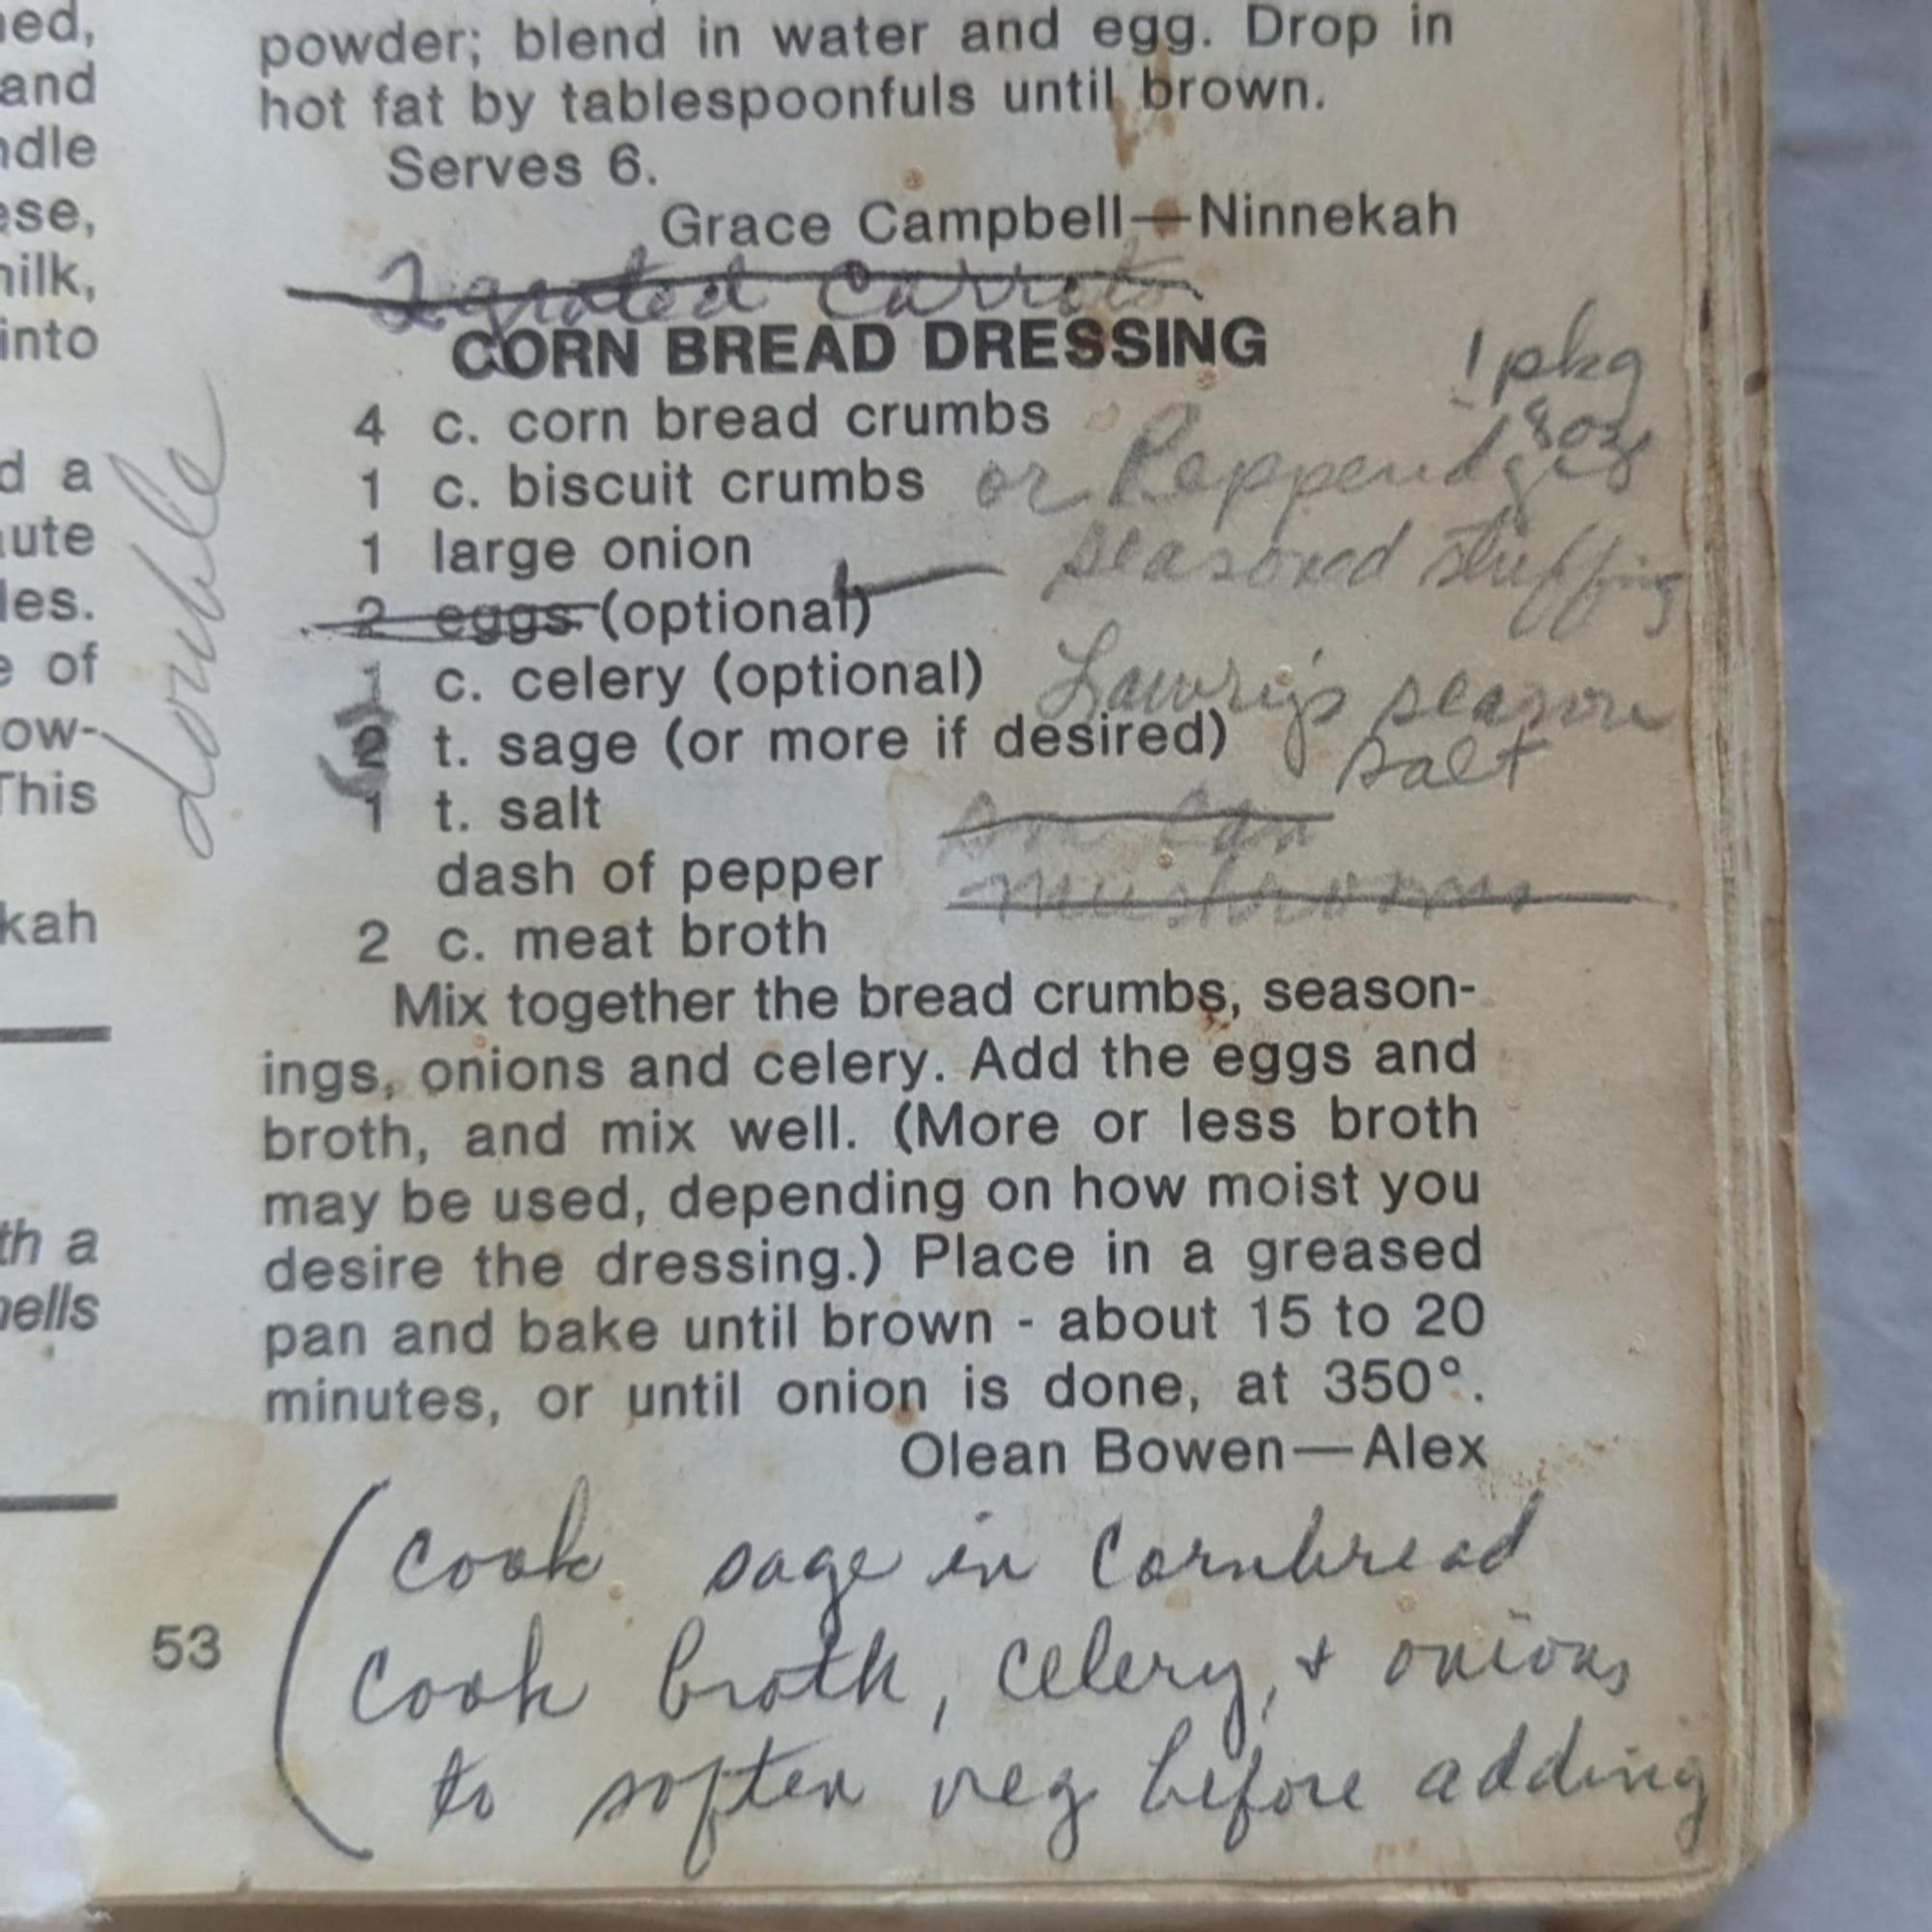 ed,
and
ndle
ese,
nilk,
into
d a
ute
les.
e of
ow-
This
kah
th a
ells
powder; blend in water and egg. Drop in
hot fat by tablespoonfuls until brown.
Serves 6.
Grace Campbell—Ninnekah
grated Carrots
CORN BREAD DRESSING
1 pkg
8 oz
4 c. corn bread crumbs
1 c. biscuit crumbs or
seasoned stuffing
1 large onion
2 eggs (optional)
1 c. celery (optional)
Lawry's season
salt
2 t. sage (or more if desired)
1 t. salt
can
dash of pepper
mushrooms
2 c. meat broth
double
Mix together the bread crumbs, season-
ings, onions and celery. Add the eggs and
broth, and mix well. (More or less broth
may be used, depending on how moist you
desire the dressing.) Place in a greased
pan and bake until brown - about 15 to 20
minutes, or until onion is done, at 350°.
Olean Bowen—Alex
(cook sage in Cornbread
cook broth, celery, + onions
to soften veg before adding
53